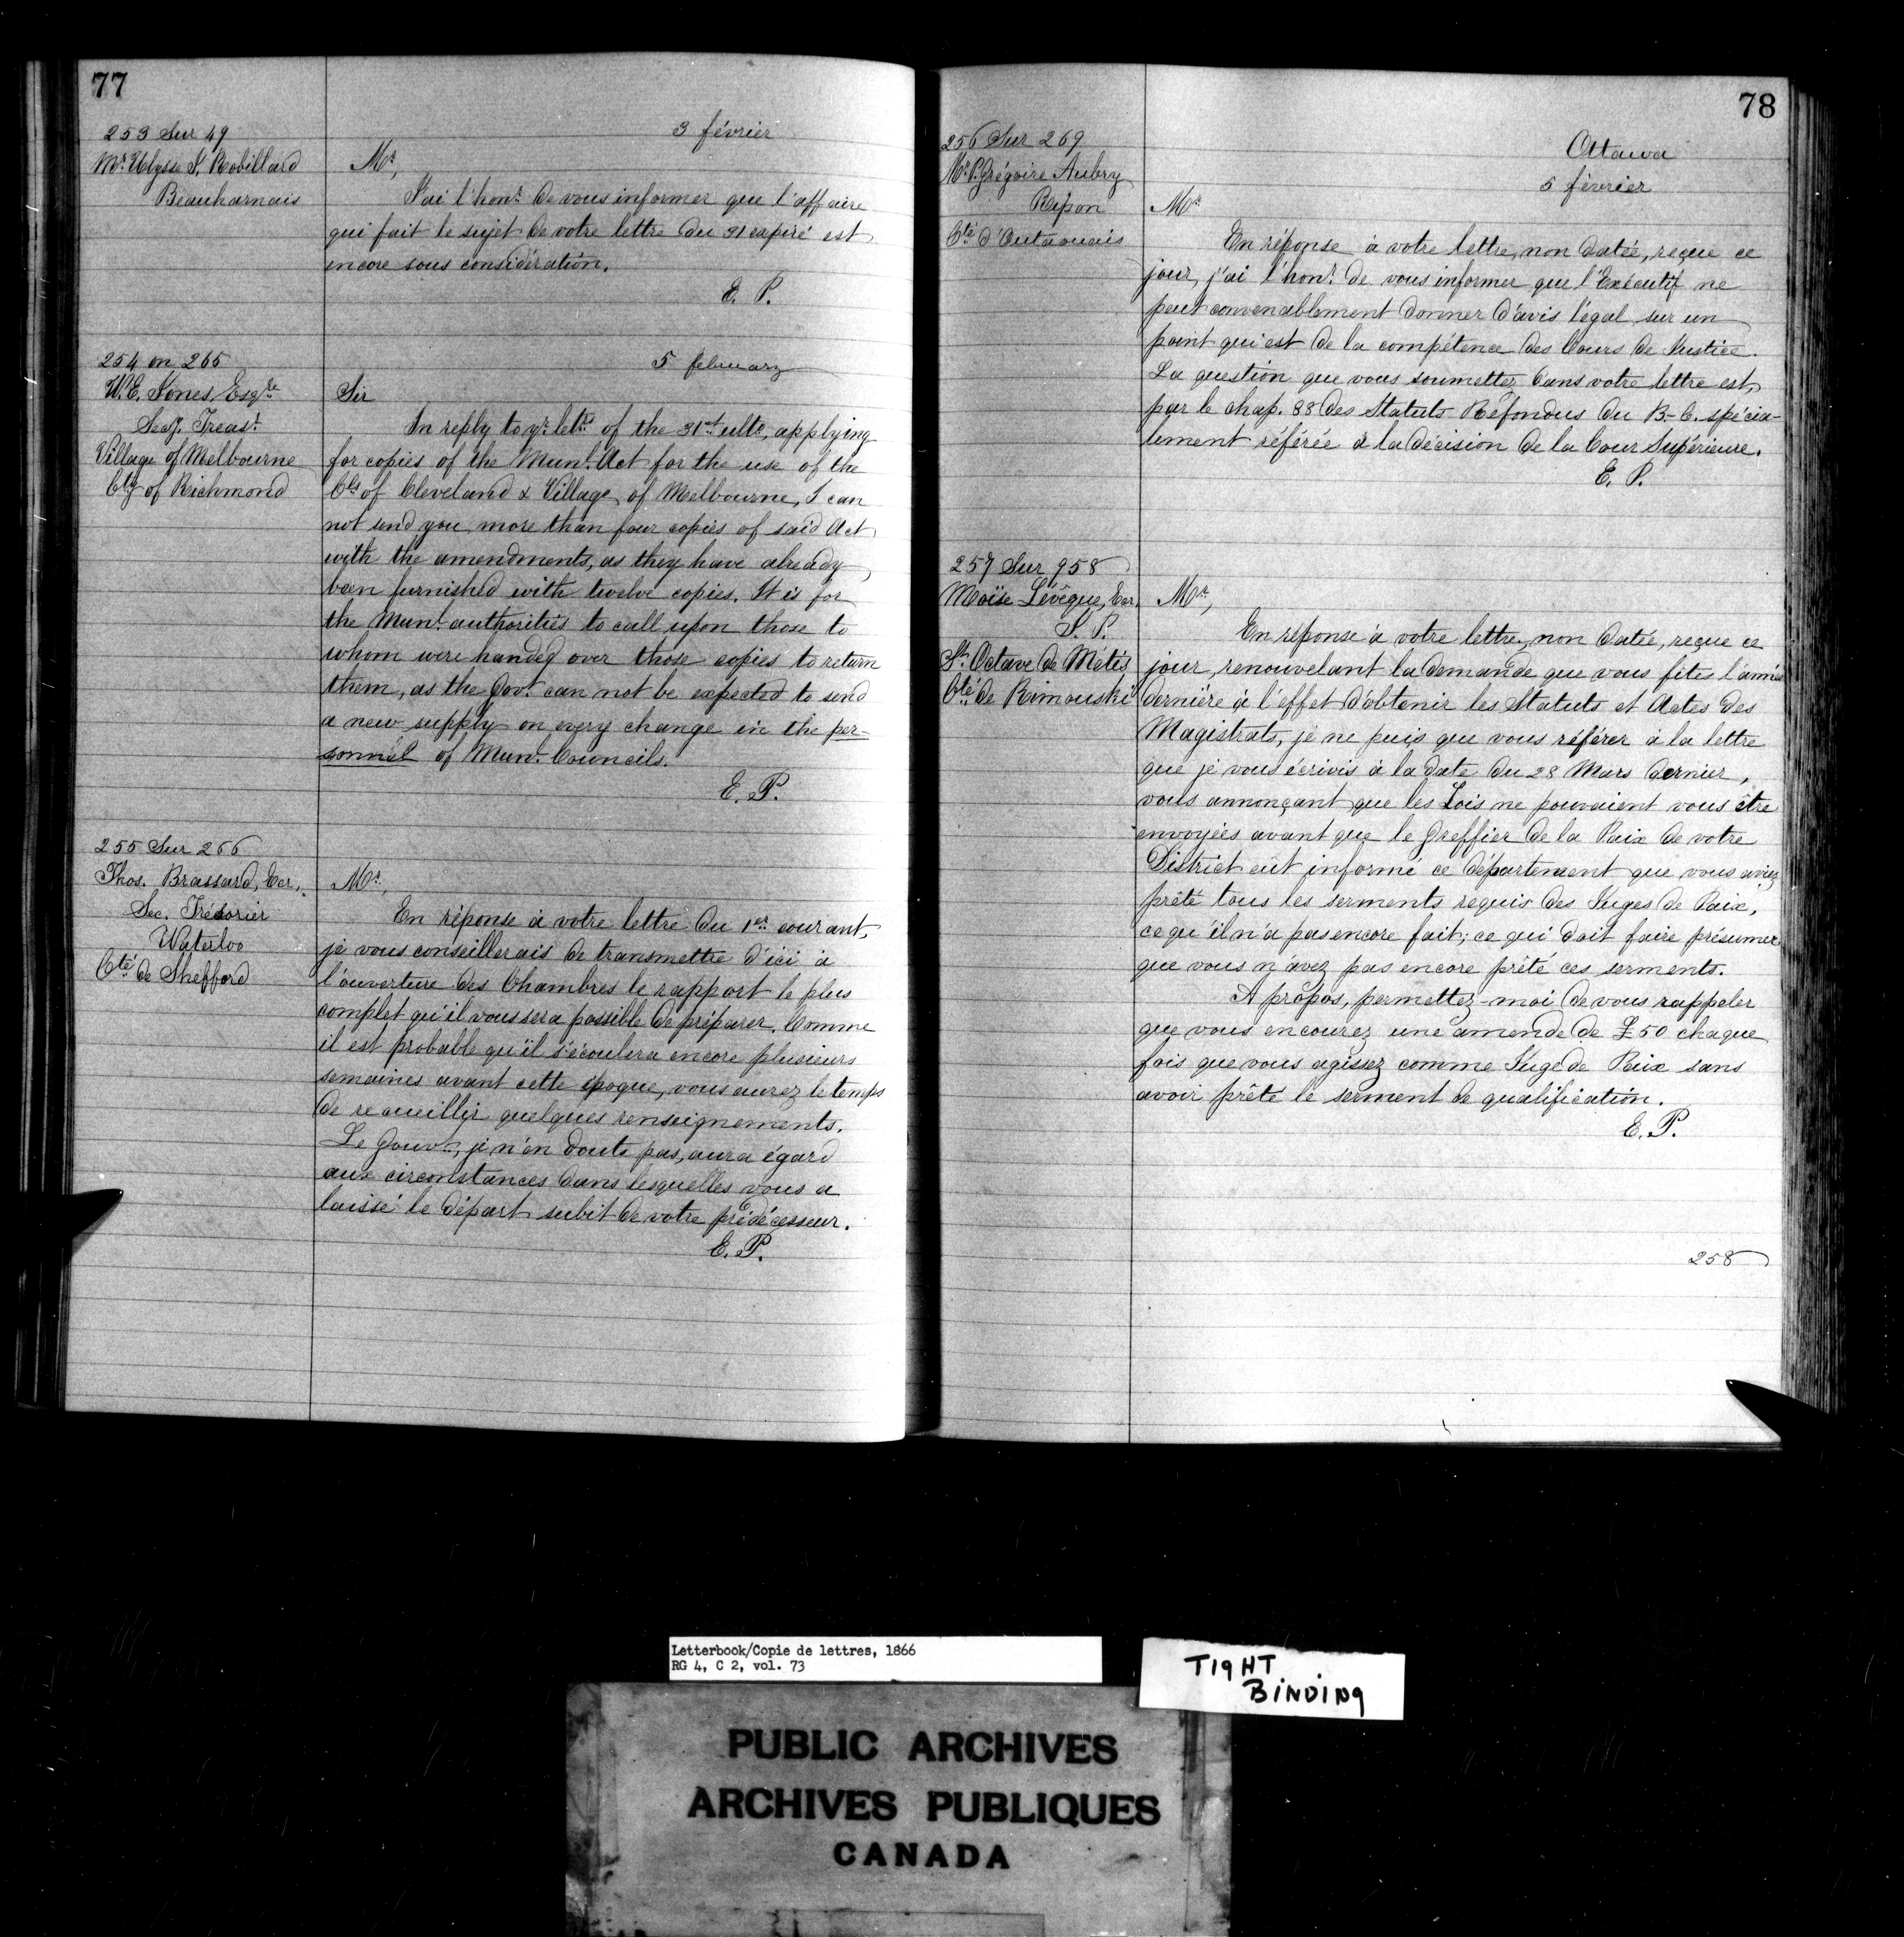 77
253 Sur 49
Mr. Ulysse S. Robillard
Beauharnais
3 février
Mr,
J'ai l'honr. de vous informer que l'affaire
qui fait le sujet de votre lettre du 31 expiré est
encore sous considération.
E. P.
254 on 265
W. E. Jones, Esqre
Secy. Treasr.
Village of Melbourne
Cty of Richmond
5 february
Sir
In reply to yr. letre of the 31st ulto, applying
for copies of the Munl. Act for the use of the
Cls of Cleveland & Village of Melbourne, I can
not send you more than four copies of said Act
with the amendments, as they have already
been furnished with twelve copies. It is for
the Munl. authorities to call upon those to
whom were handed over those copies to return
them, as the Govt. can not be expected to send
a new supply on every change in the per-
sonnel of Munl. Councils.
E. P.
255 Sur 266
Thos. Brassard, Ecr.,
Sec. Trésorier
Waterloo
Cté de Shefford
Mr,
En réponse à votre lettre du 1er courant,
je vous conseillerais de transmettre d'ici à
l'ouverture des Chambres le rapport le plus
complet qu'il vous sera possible de préparer. Comme
il est probable qu'il s'écoulera encore plusieurs
semaines avant cette époque, vous aurez le temps
de recueillir quelques renseignements.
Le Gouvt., je n'en doute pas, aura égard
aux circonstances dans lesquelles vous a
laissé le départ subit de votre prédécesseur.
E. P.
78
256 Sur 269
Mr. P. Grégoire Aubry
Ripon
Cté d'Outaouais
Ottawa
5 février
Mr.
En réponse à votre lettre, non datée, reçue ce
jour, j'ai l'honr. de vous informer que l'Exécutif ne
peut convenablement donner d'avis légal sur un
point qui est de la compétence des Cours de Justice.
La question que vous soumettez dans votre lettre est,
par le chap. 88 des Statuts Refondus du B-C. spécia-
lement référée à la décision de la Cour Supérieure.
E. P.
257 Sur 958
Moïse Lévêque, Ecr.
J. P.
St. Octave de Métis
Cté de Rimouski
Mr,
En réponse à votre lettre, non datée, reçue ce
jour, renouvelant la demande que vous fites l'année
dernière à l'effet d'obtenir les Statuts et Actes des
Magistrats, je ne puis que vous référer à la lettre
que je vous écrivis à la date du 28 Mars dernier,
vous annonçant que les Lois ne pouvaient vous être
envoyées avant que le Greffier de la Paix de votre
District eût informé ce département que vous aviez
prêté tous les serments requis des Juges de Paix,
ce qu'il n'a pas encore fait; ce qui doit faire présumer
que vous n'avez pas encore prêté ces serments.
A propos, permettez-moi de vous rappeler
que vous encourez une amende de £50 chaque
fois que vous agissez comme Juge de Paix sans
avoir prêté le serment de qualification.
E. P.
258
Letterbook/Copie de lettres, 1866
RG 4, C 2, vol. 73
TIGHT
BINDING
PUBLIC ARCHIVES
ARCHIVES PUBLIQUES
CANADA